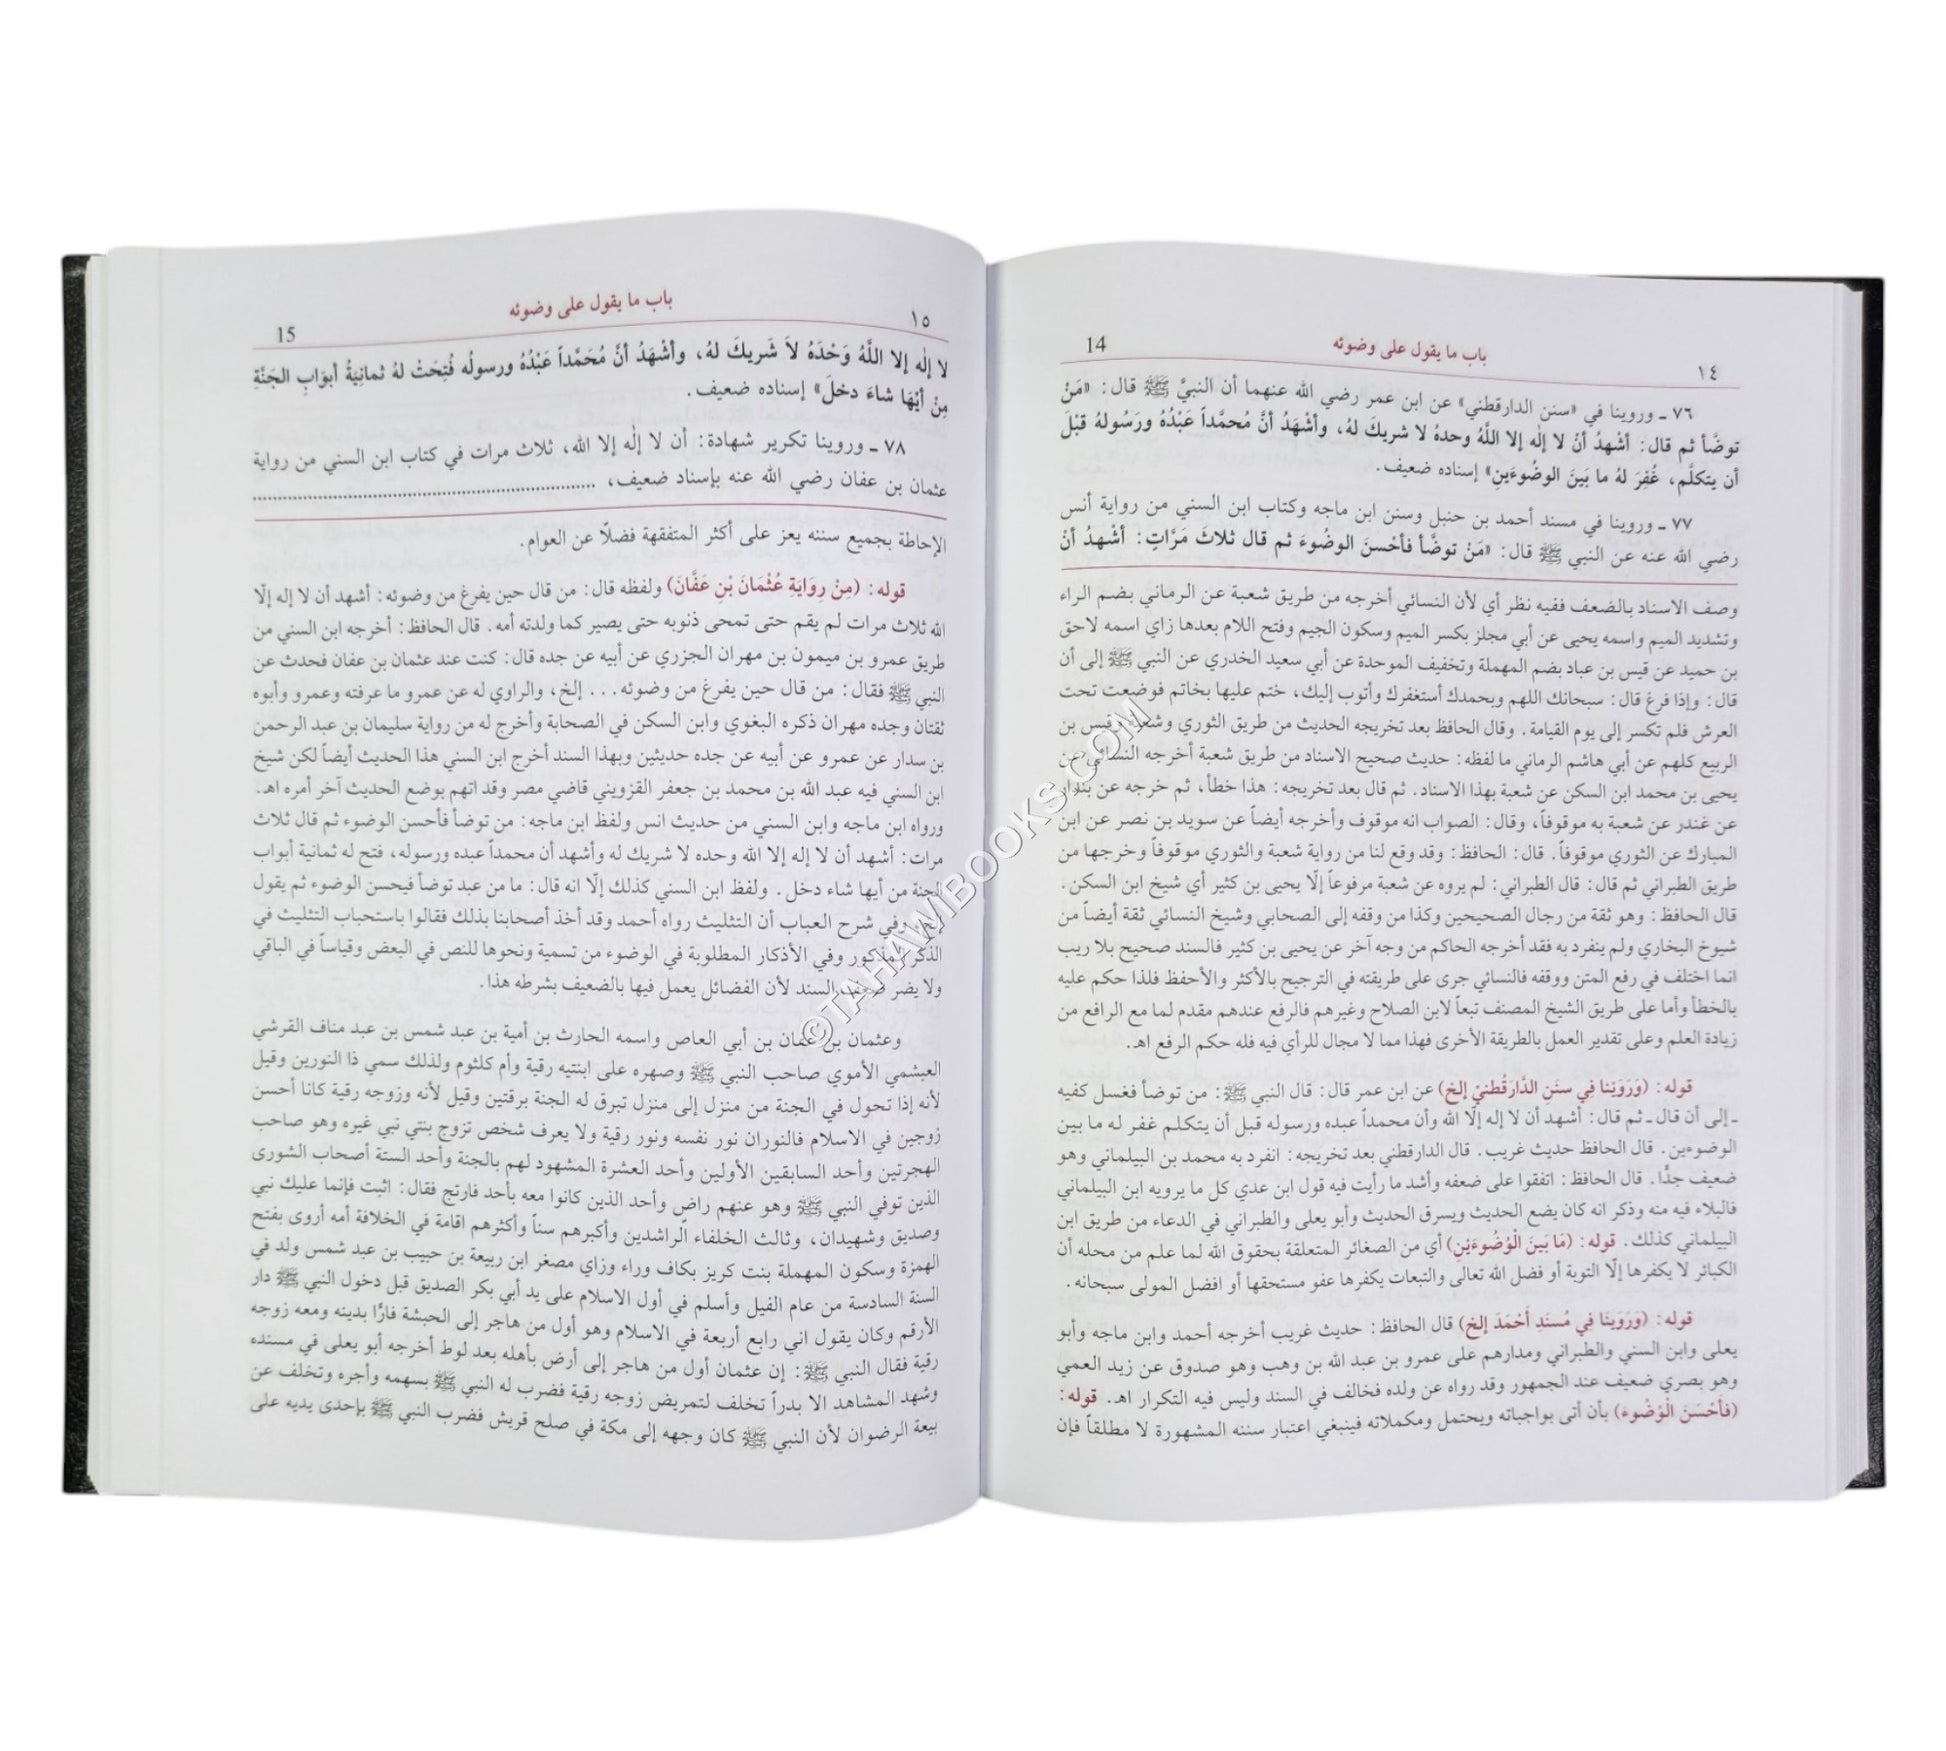 ١٤
باب ما يقول على وضوئه
14
٧٦ ـ وروينا في «سنن الدارقطني» عن ابن عمر رضي الله عنهما أن النبيَّ ﷺ قال: «مَنْ
توضَّأ ثم قال: أشْهدُ أنْ لا إله إلا اللَّهُ وحدهُ لا شريكَ لهُ، وأشْهَدُ أنَّ مُحمَّداً عَبْدُهُ ورَسُولهُ قبْلَ
أن يتكلَّم، غُفِرَ لهُ ما بَينَ الوضُوءَينِ» إسناده ضعيف.
٧٧ ـ وروينا في مسند أحمد بن حنبل وسنن ابن ماجه وكتاب ابن السني من رواية أنس
رضي الله عنه عن النبي ﷺ قال: «مَنْ توضَّأ فأحْسنَ الوضُوءَ ثم قال ثلاثَ مَرَّاتٍ: أشْهدُ أنْ
وصف الاسناد بالضعف ففيه نظر أي لأن النسائي أخرجه من طريق شعبة عن الرماني بضم الراء
وتشديد الميم واسمه يحيى عن أبي مجلز بكسر الميم وسكون الجيم وفتح اللام بعدها زاي اسمه لاحق
بن حميد عن قيس بن عباد بضم المهملة وتخفيف الموحدة عن أبي سعيد الخدري عن النبي ﷺ إلى أن
قال: وإذا فرغ قال: سبحانك اللهم وبحمدك أستغفرك وأتوب إليك، ختم عليها بخاتم فوضعت تحت
العرش فلم تكسر إلى يوم القيامة. وقال الحافظ بعد تخريجه الحديث من طريق الثوري وشعبة وقيس بن
الربيع كلهم عن أبي هاشم الرماني ما لفظه: حديث صحيح الاسناد من طريق شعبة أخرجه النسائي عن
يحيى بن محمد ابن السكن عن شعبة بهذا الاسناد. ثم قال بعد تخريجه: هذا خطأ، ثم خرجه عن بندار
عن غندر عن شعبة به موقوفاً، وقال: الصواب انه موقوف وأخرجه أيضاً عن سويد بن نصر عن ابن
المبارك عن الثوري موقوفاً. قال: الحافظ: وقد وقع لنا من رواية شعبة والثوري موقوفاً وخرجها من
طريق الطبراني ثم قال: قال الطبراني: لم يروه عن شعبة مرفوعاً إلّا يحيى بن كثير أي شيخ ابن السكن.
قال الحافظ: وهو ثقة من رجال الصحيحين وكذا من وقفه إلى الصحابي وشيخ النسائي ثقة أيضاً من
شيوخ البخاري ولم ينفرد به فقد أخرجه الحاكم من وجه آخر عن يحيى بن كثير فالسند صحيح بلا ريب
انما اختلف في رفع المتن ووقفه فالنسائي جرى على طريقته في الترجيح بالأكثر والأحفظ فلذا حكم عليه
بالخطأ وأما على طريق الشيخ المصنف تبعاً لابن الصلاح وغيرهم فالرفع عندهم مقدم لما مع الرافع من
زيادة العلم وعلى تقدير العمل بالطريقة الأخرى فهذا مما لا مجال للرأي فيه فله حكم الرفع اهـ.
قوله: (وَرَوَيْنا فِي سنَنِ الدَّارَقُطنيْ إلخ) عن ابن عمر قال: قال النبي ﷺ: من توضأ فغسل كفيه
ـ إلى أن قال ـ ثم قال: أشهد أن لا إله إلّا الله وأن محمداً عبده ورسوله قبل أن يتكلم غفر له ما بين
الوضوءين. قال الحافظ حديث غريب. قال الدارقطني بعد تخريجه: انفرد به محمد بن البيلماني وهو
ضعيف جدًّا. قال الحافظ: اتفقوا على ضعفه وأشد ما رأيت فيه قول ابن عدي كل ما يرويه ابن البيلماني
فالبلاء فيه منه وذكر انه كان يضع الحديث ويسرق الحديث وأبو يعلى والطبراني في الدعاء من طريق ابن
البيلماني كذلك. قوله: (مَا بَينَ الْوُضُوءَيْنِ) أي من الصغائر المتعلقة بحقوق الله لما علم من محله أن
الكبائر لا يكفرها إلّا التوبة أو فضل الله تعالى والتبعات يكفرها عفو مستحقها أو افضل المولى سبحانه.
قوله: (وَرَوَيْنَا فِي مُسنَدِ أَحْمَدَ إلخ) قال الحافظ: حديث غريب أخرجه أحمد وابن ماجه وأبو
يعلى وابن السني والطبراني ومدارهم على عمرو بن عبد الله بن وهب وهو صدوق عن زيد العمي
وهو بصري ضعيف عند الجمهور وقد رواه عن ولده فخالف في السند وليس فيه التكرار اهـ. قوله:
(فأحْسَنَ الْوُضُوءَ) بأن أتى بواجباته ويحتمل ومكملاته فينبغي اعتبار سننه المشهورة لا مطلقاً فإن
١٥
باب ما يقول على وضوئه
15
لا إله إلا اللَّهُ وَحْدَهُ لاَ شَريكَ لهُ، وأشْهَدُ أنَّ مُحَمَّداً عَبْدُهُ ورسولُه فُتِحَتْ لهُ ثمانِيَةُ أبوَابِ الجَنَّةِ
مِنْ أيِّهَا شاءَ دخلَ» إسناده ضعيف.
٧٨ ـ وروينا تكرير شهادة: أن لا إله إلا الله، ثلاث مرات في كتاب ابن السني من رواية
عثمان بن عفان رضي الله عنه بإسناد ضعيف، ........................
الإحاطة بجميع سننه يعز على أكثر المتفقهة فضلًا عن العوام.
قوله: (مِنْ رِوَايَةِ عُثْمَانَ بْنِ عَفَّانَ) ولفظه قال: من قال حين يفرغ من وضوئه: أشهد أن لا إله إلّا
الله ثلاث مرات لم يقم حتى تمحى ذنوبه حتى يصير كما ولدته أمه. قال الحافظ: أخرجه ابن السني من
طريق عمرو بن ميمون بن مهران الجزري عن أبيه عن جده قال: كنت عند عثمان بن عفان فحدث عن
النبي ﷺ فقال: من قال حين يفرغ من وضوئه... إلخ، والراوي له عن عمرو ما عرفته وعمرو وأبوه
ثقتان وجده مهران ذكره البغوي وابن السكن في الصحابة وأخرج له من رواية سليمان بن عبد الرحمن
بن سدار عن عمرو عن أبيه عن جده حديثين وبهذا السند أخرج ابن السني هذا الحديث أيضاً لكن شيخ
ابن السني فيه عبد الله بن محمد بن جعفر القزويني قاضي مصر وقد اتهم بوضع الحديث آخر أمره اهـ.
ورواه ابن ماجه وابن السني من حديث انس ولفظ ابن ماجه: من توضأ فأحسن الوضوء ثم قال ثلاث
مرات: أشهد أن لا إله إلا الله وحده لا شريك له وأشهد أن محمداً عبده ورسوله، فتح له ثمانية أبواب
الجنة من أيها شاء دخل. ولفظ ابن السني كذلك إلّا انه قال: ما من عبد توضأ فيحسن الوضوء ثم يقول
إلخ، وفي شرح العباب أن التثليث رواه أحمد وقد أخذ أصحابنا بذلك فقالوا باستحباب التثليث في
الذكر المذكور وفي الأذكار المطلوبة في الوضوء من تسمية ونحوها للنص في البعض وقياساً في الباقي
ولا يضر ضعف السند لأن الفضائل يعمل فيها بالضعيف بشرطه هذا.
وعثمان بن عفان بن أبي العاص واسمه الحارث بن أمية بن عبد شمس بن عبد مناف القرشي
العبشمي الأموي صاحب النبي ﷺ وصهره على ابنتيه رقية وأم كلثوم ولذلك سمي ذا النورين وقيل
لأنه إذا تحول في الجنة من منزل إلى منزل تبرق له الجنة برقتين وقيل لأنه وزوجه رقية كانا أحسن
زوجين في الاسلام فالنوران نور نفسه ونور رقية ولا يعرف شخص تزوج بنتي نبي غيره وهو صاحب
الهجرتين وأحد السابقين الأولين وأحد العشرة المشهود لهم بالجنة وأحد الستة أصحاب الشورى
الذين توفي النبي ﷺ وهو عنهم راض وأحد الذين كانوا معه بأحد فارتج فقال: اثبت فإنما عليك نبي
وصديق وشهيدان، وثالث الخلفاء الراشدين وأكبرهم سناً وأكثرهم اقامة في الخلافة أمه أروى بفتح
الهمزة وسكون المهملة بنت كريز بكاف وراء وزاي مصغر ابن ربيعة بن حبيب بن عبد شمس ولد في
السنة السادسة من عام الفيل وأسلم في أول الاسلام على يد أبي بكر الصديق قبل دخول النبي ﷺ دار
الأرقم وكان يقول اني رابع أربعة في الاسلام وهو أول من هاجر إلى الحبشة فارًّا بدينه ومعه زوجه
رقية فقال النبي ﷺ: إن عثمان أول من هاجر إلى أرض بأهله بعد لوط أخرجه أبو يعلى في مسنده
وشهد المشاهد الا بدراً تخلف لتمريض زوجه رقية فضرب له النبي ﷺ بسهمه وأجره وتخلف عن
بيعة الرضوان لأن النبي ﷺ كان وجهه إلى مكة في صلح قريش فضرب النبي ﷺ بإحدى يديه على
©TAHAWIBOOKS.COM